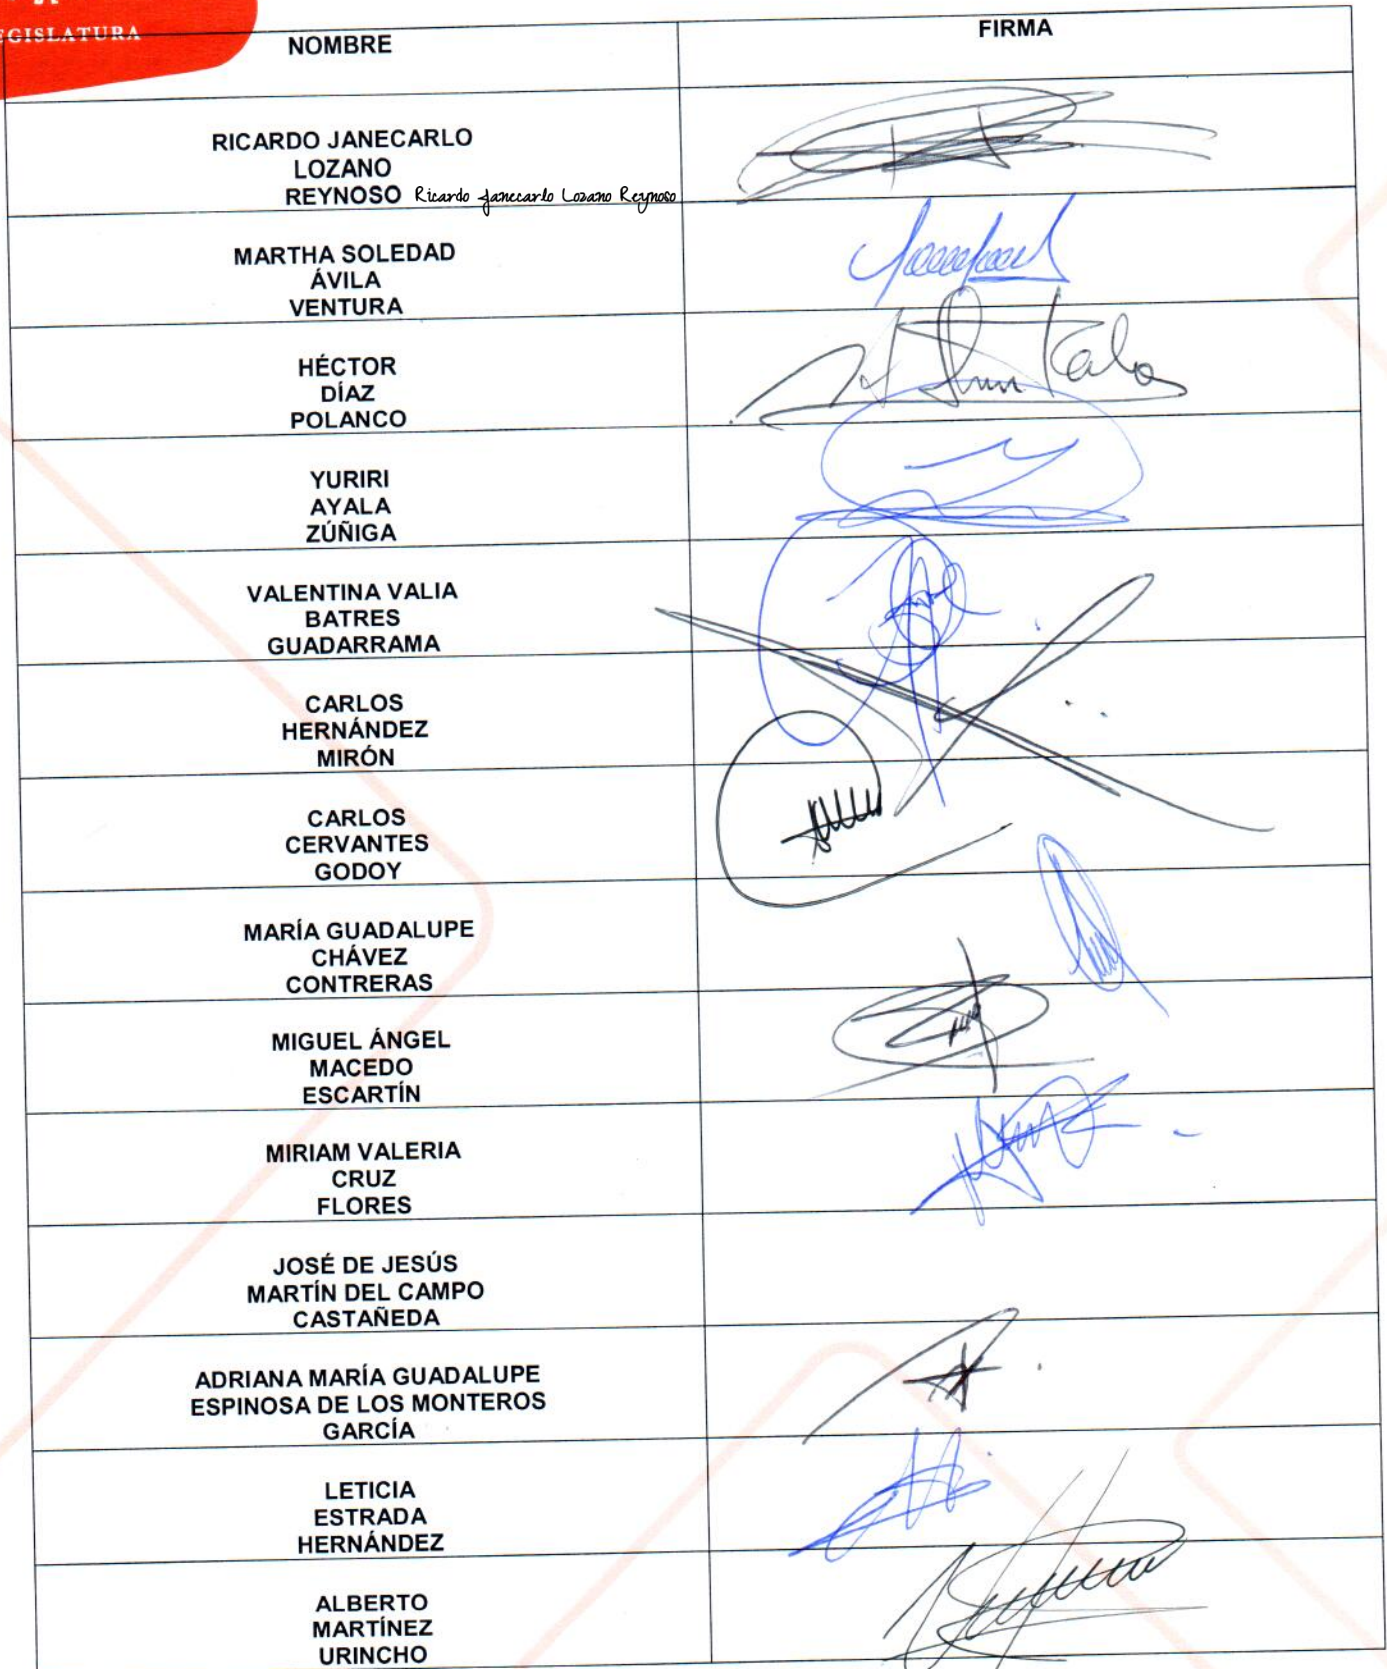 EGISLATURA
NOMBRE
FIRMA
RICARDO JANECARLO
LOZANO
REYNOSO Ricardo Janecarlo Lozano Reynoso
MARTHA SOLEDAD
ÁVILA
VENTURA
HÉCTOR
DÍAZ
POLANCO
YURIRI
AYALA
ZÚÑIGA
VALENTINA VALIA
BATRES
GUADARRAMA
CARLOS
HERNÁNDEZ
MIRÓN
CARLOS
CERVANTES
GODOY
MARÍA GUADALUPE
CHÁVEZ
CONTRERAS
MIGUEL ÁNGEL
MACEDO
ESCARTÍN
MIRIAM VALERIA
CRUZ
FLORES
JOSÉ DE JESÚS
MARTÍN DEL CAMPO
CASTAÑEDA
ADRIANA MARÍA GUADALUPE
ESPINOSA DE LOS MONTEROS
GARCÍA
LETICIA
ESTRADA
HERNÁNDEZ
ALBERTO
MARTÍNEZ
URINCHO